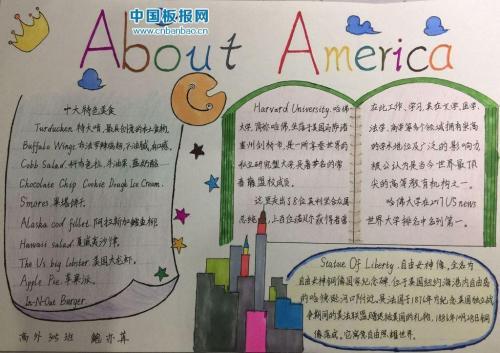 中国板报网
www.cnbanbao.cn
About America
十大特色美食
Turducken 特大啃,最具创意的
Buffalo Wings 布法罗辣鸡翅,不油腻
Cobb Salad 科布色拉,牛油果,蓝奶酪
Chocolate Chip Cookie Dough Ice Cream.
Smores 果塔饼干.
Alaska cod fillet 阿拉斯加鳕鱼柳
Hawaii salad 夏威夷沙律.
The Us big lobster 美国大龙虾.
Apple Pie 苹果派.
In-N-Out Burger.
高外 班 鲍亦
Harvard University. 哈佛
大学,简称哈佛,坐落于美国马萨诸
塞州剑桥市,是一所享誉世界的
私立研究型大学,是著名的常
春藤盟校成员.
这里走出了8位美利坚合众国
总统,上百位诺贝尔获得者曾
在此工作、学习,其在文学、医学、
法学、商学等多个领域拥有崇高
的学术地位及广泛的影响力
被公认为是当今世界最顶
尖的高等教育机构之一.
哈佛大学在2017US news
世界大学排名中名列第一.
Statue Of Liberty.自由女神像,全名为
自由女神铜像国家纪念碑,位于美国纽约海港内自由岛
的哈德逊河口附近,是法国于1876年为纪念美国独立战
争期间的美法联盟赠送给美国的礼物,1886年10月28日铜
像落成,它寓意自由照耀世界.